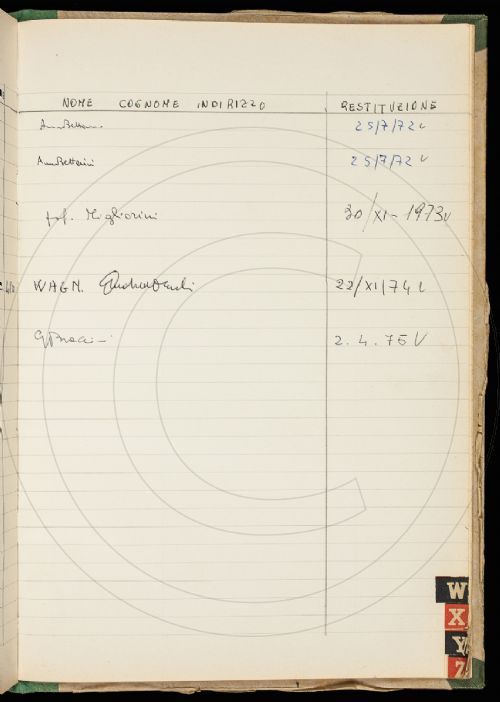 NOME COGNOME INDIRIZZO RESTITUZIONE
25/7/72
Ann Betterini 25/7/72
prof. Migliorini 30/XI-1973
WAGN. 22/XI/74
2.4.75
W
X
Y
Z